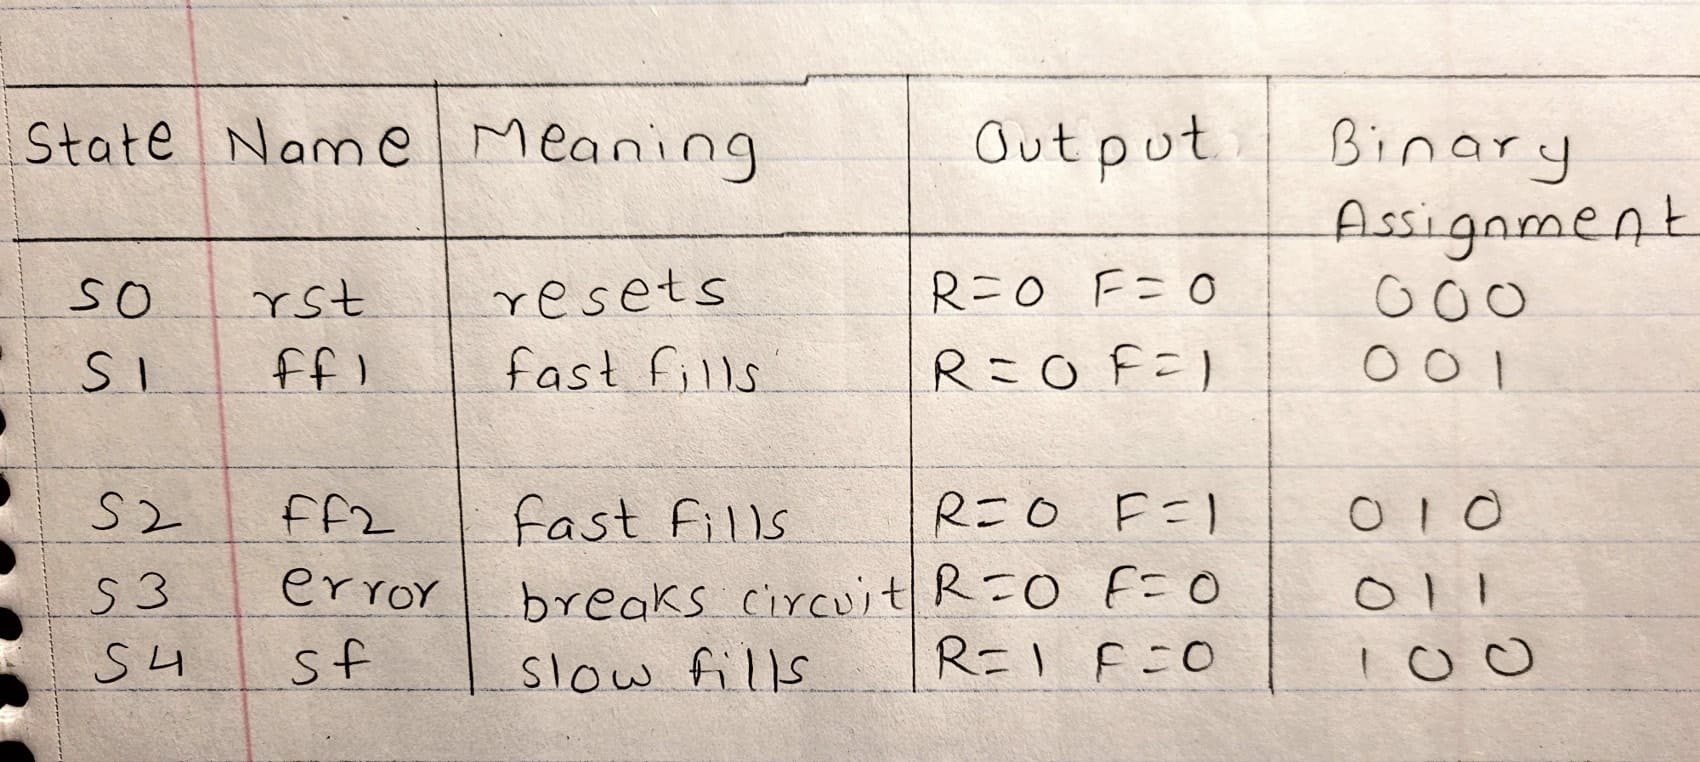 State Name Meaning Output Binary
Assignment
S0 rst resets R=0 F=0 000
S1 ff1 fast fills R=0 F=1 001
S2 ff2 fast fills R=0 F=1 010
S3 error breaks circuit R=0 F=0 011
S4 sf slow fills R=1 F=0 100